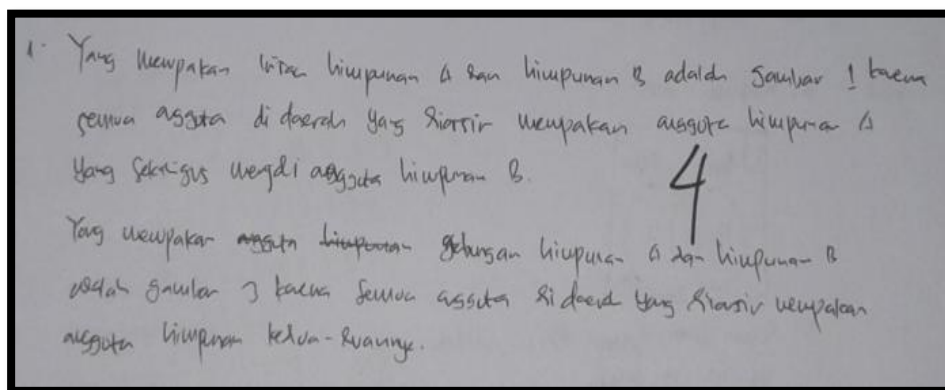 1. Yang merupakan irisan himpunan A dan himpunan B adalah gambar 1 karena
semua anggota di daerah yang diarsir merupakan anggota himpunan A
yang sekaligus menjadi anggota himpunan B.
4
Yang merupakan anggota himpunan gabungan himpunan A dan himpunan B
adalah gambar 3 karena semua anggota di daerah yang diarsir merupakan
anggota himpunan kedua-duanya.